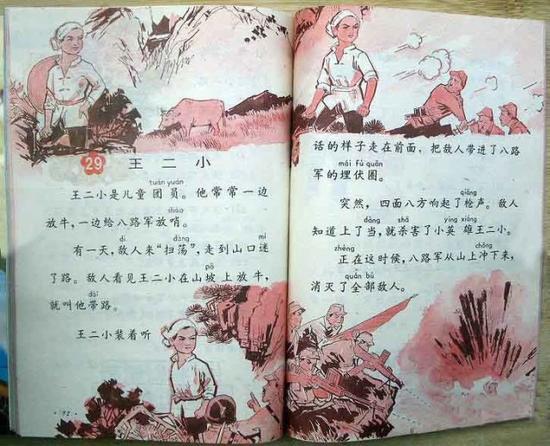 29 王二小
tuán yuán
王二小是儿童团员。他常常一边
shào
放牛，一边给八路军放哨。
dí dàng mí
有一天，敌人来“扫荡”，走到山口迷
pō
了路。敌人看见王二小在山坡上放牛，
dài
就叫他带路。
王二小装着听
话的样子走在前面，把敌人带进了八路
mái fú quān
军的埋伏圈。
突然，四面八方响起了枪声。敌人
dàng shā yīng xióng
知道上了当，就杀害了小英雄王二小。
zhèng chōng
正在这时候，八路军从山上冲下来，
quán bù
消灭了全部敌人。